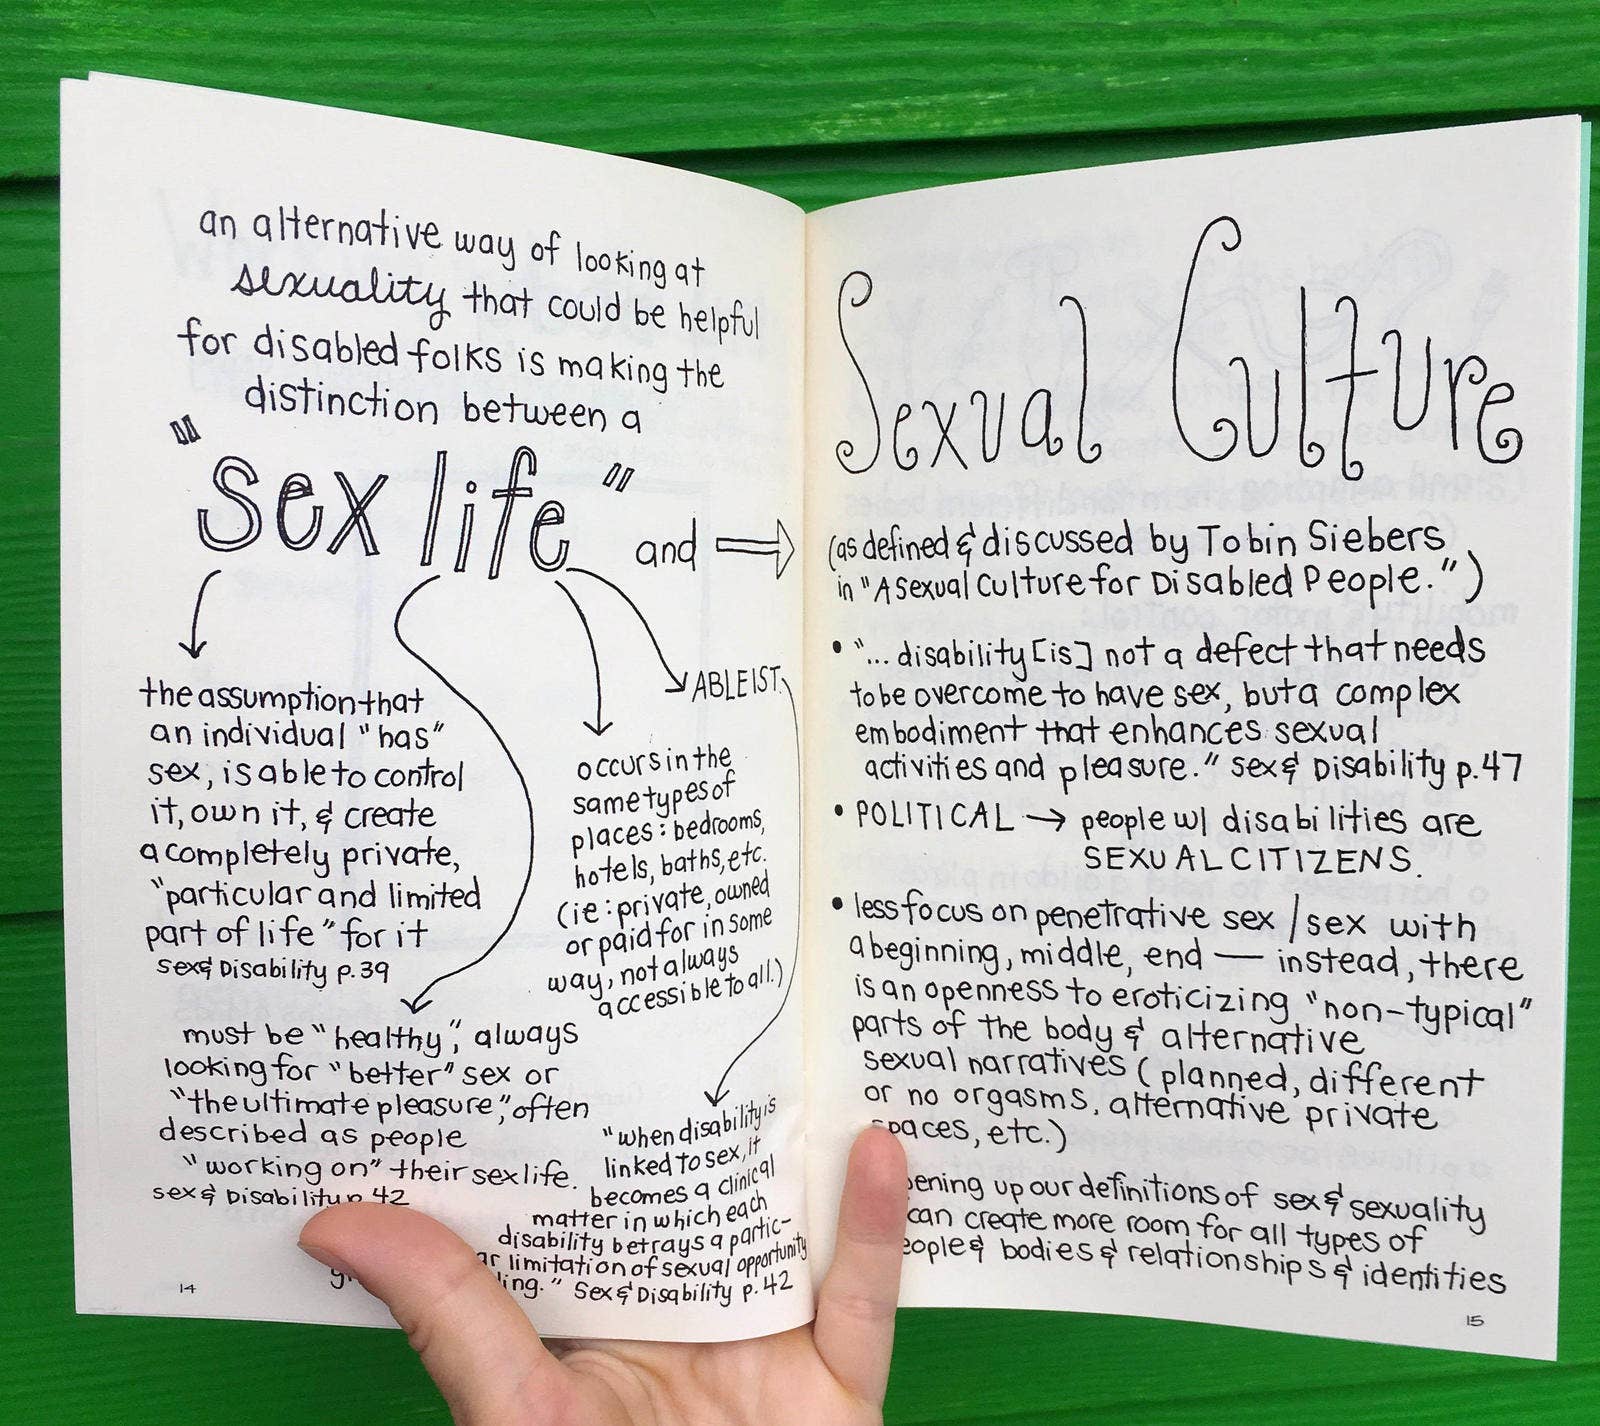 an alternative way of looking at
sexuality that could be helpful
for disabled folks is making the
distinction between a
"sex life" and
the assumption that
an individual "has"
sex, is able to control
it, own it, & create
a completely private,
"particular and limited
part of life" for it
sex & Disability p. 39
must be "healthy", always
looking for "better" sex or
"the ultimate pleasure", often
described as people
"working on" their sex life.
sex & Disability p. 42
occurs in the
same types of
places: bedrooms,
hotels, baths, etc.
(ie: private, owned
or paid for in some
way, not always
accessible to all.)
ABLEIST.
"when disability is
linked to sex, it
becomes a clinical
matter in which each
disability betrays a partic-
limitation of sexual opportunity
" Sex & Disability p. 42
14
Sexual Culture
(as defined & discussed by Tobin Siebers
in "A Sexual Culture for Disabled People.")
• "... disability [is] not a defect that needs
to be overcome to have sex, but a complex
embodiment that enhances sexual
activities and pleasure." Sex & Disability p. 47
• POLITICAL → people w/ disabilities are
SEXUAL CITIZENS.
• less focus on penetrative sex / sex with
a beginning, middle, end — instead, there
is an openness to eroticizing "non-typical"
parts of the body & alternative
sexual narratives (planned, different
or no orgasms, alternative private
spaces, etc.)
up our definitions of sex & sexuality
can create more room for all types of
& bodies & relationships & identities
15